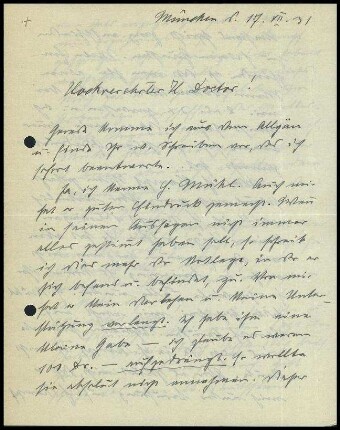 München d. 17. VII. 31
Hochverehrter H. Doctor!
Gerade komme ich aus dem Allgäu
u. finde Ihr w. Schreiben vor, das ich
sofort beantworte.
Ja, ich kenne H. Mühl. Auch mir
hat er guten Eindruck gemacht. Wenn
in seinen Aussagen nicht immer
alles gestimmt haben soll, so schreib
ich dies mehr der Notlage, in der er
sich befand u. befindet, zu. Von mir
hat er kein Darlehen u. keine Unter-
stützung verlangt. Ich habe ihm eine
kleine Gabe — ich glaube es waren
100 Fr. — aufgedrängt. Er wollte
sie absolut nicht annehmen. Dieser